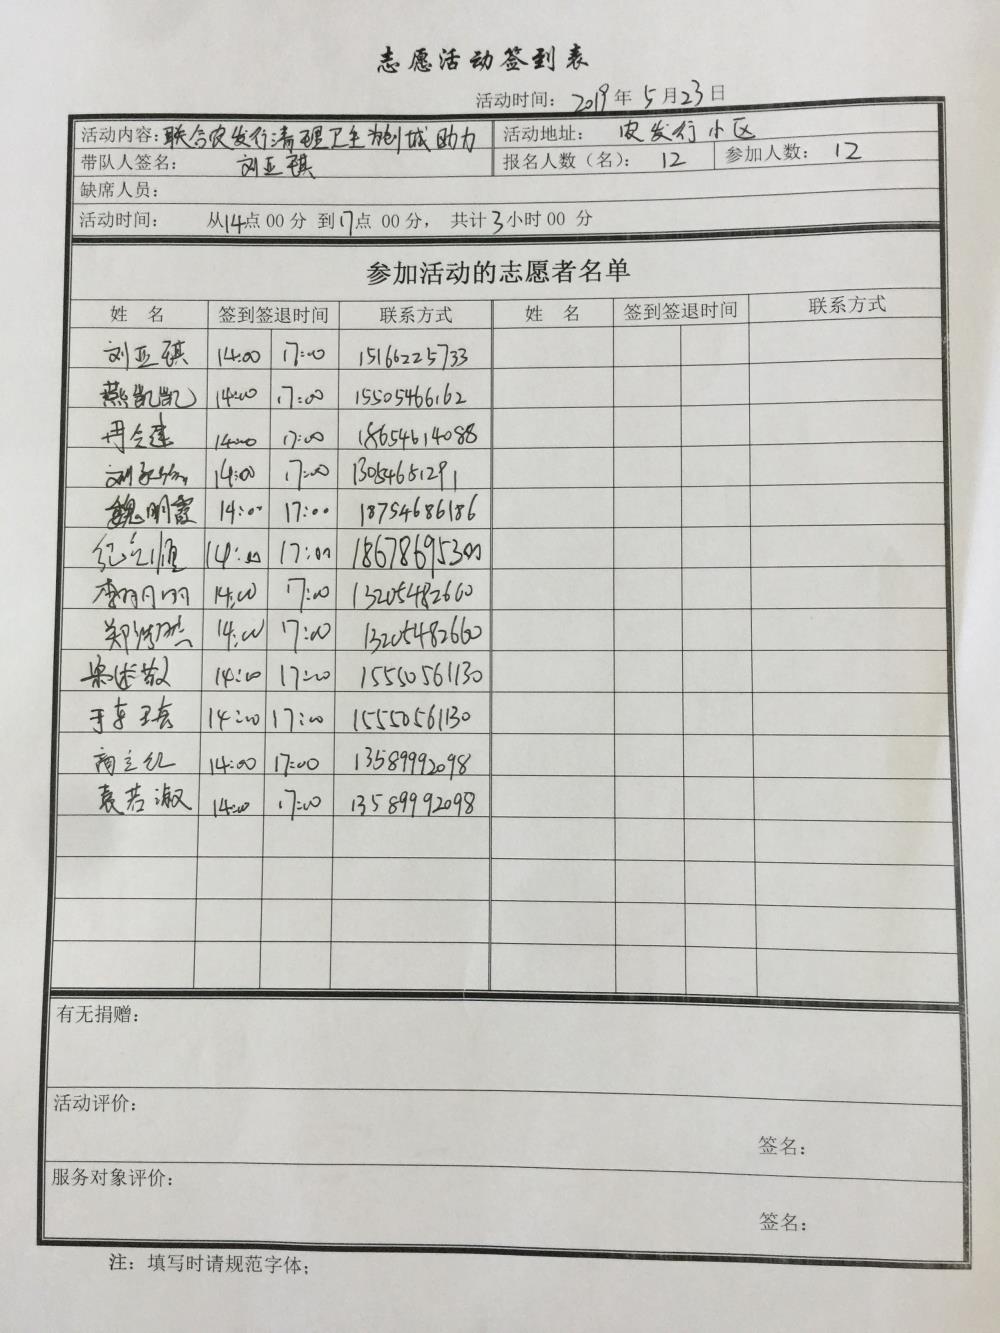 志愿活动签到表
活动时间: 2019年5月23日
活动内容:联合农发行清理卫生为创城助力 活动地址: 农发行小区
带队人签名: 刘亚琪 报名人数(名): 12 参加人数: 12
缺席人员:
活动时间: 从14点00分 到17点 00分, 共计3小时00 分
参加活动的志愿者名单
姓 名 签到签退时间 联系方式 姓 名 签到签退时间 联系方式
刘亚琪 14:00 17:00 15166225733
燕凯凯 14:00 17:00 15505466162
冉令建 14:00 17:00 18654614088
刘 14:00 17:00 13054651291
魏明霞 14:00 17:00 18754686186
纪 14:00 17:00 18678695300
李明明 14:00 17:00 13205482660
郑浩然 14:00 17:00 13205482660
梁述敬 14:00 17:00 15550561130
于 14:00 17:00 15550561130
商立红 14:00 17:00 13589992098
袁若淑 14:00 17:00 13589992098
有无捐赠:
活动评价:
签名:
服务对象评价:
签名:
注: 填写时请规范字体;